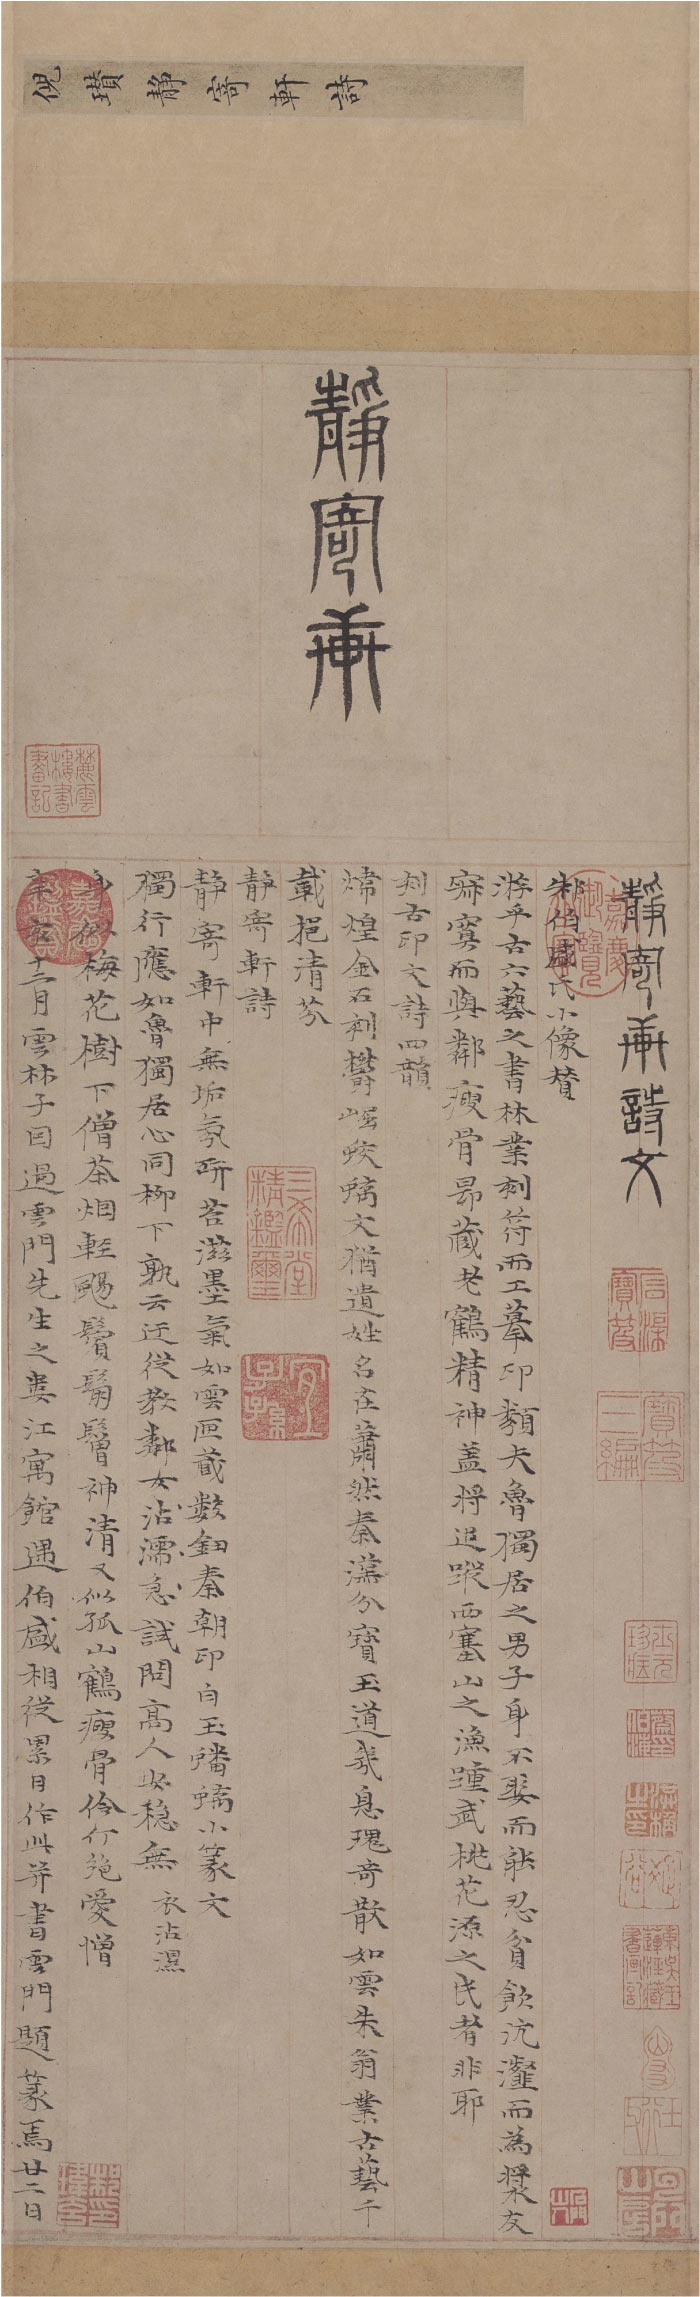 倪瓚靜寄軒詩
靜寄軒
靜寄軒詩文
朱伯盛氏小像贊
游乎古六藝之書林業刻符而工摹印類夫魯獨居之男子身不娶而能忍貧飲沆瀣而為漿友
寂寞而與鄰瘦骨昂藏老鶴精神蓋將追蹤西塞山之漁踵武桃花源之民者非耶
刻古印文詩四韻
煒煌金石刻鬱崛蛟螭文猶遺姓名在蕭然秦漢分寶玉道氣息瑰奇散如雲朱翁業古藝千
載挹清芬
靜寄軒詩
靜寄軒中無垢氛研苔滋墨氣如雲匣藏數鈕秦朝印白玉蟠螭小篆文
獨行應如魯獨居心同柳下孰云迂從教鄰女沾濡急試問高人安穩無 衣沾濕
身似梅花樹下僧茶烟輕颺鬢鬅鬙神清又似孤山鶴瘦骨伶仃絕愛憎
辛亥十二月雲林子因過雲門先生之婁江寓館遇伯盛相從累日作此并書雲門題篆焉廿二日
麓雲樓書畫記
嘉慶御覽之寶
嘉慶鑑賞
三希堂精鑑璽
宜子孫
石渠寶笈
寶笈三編